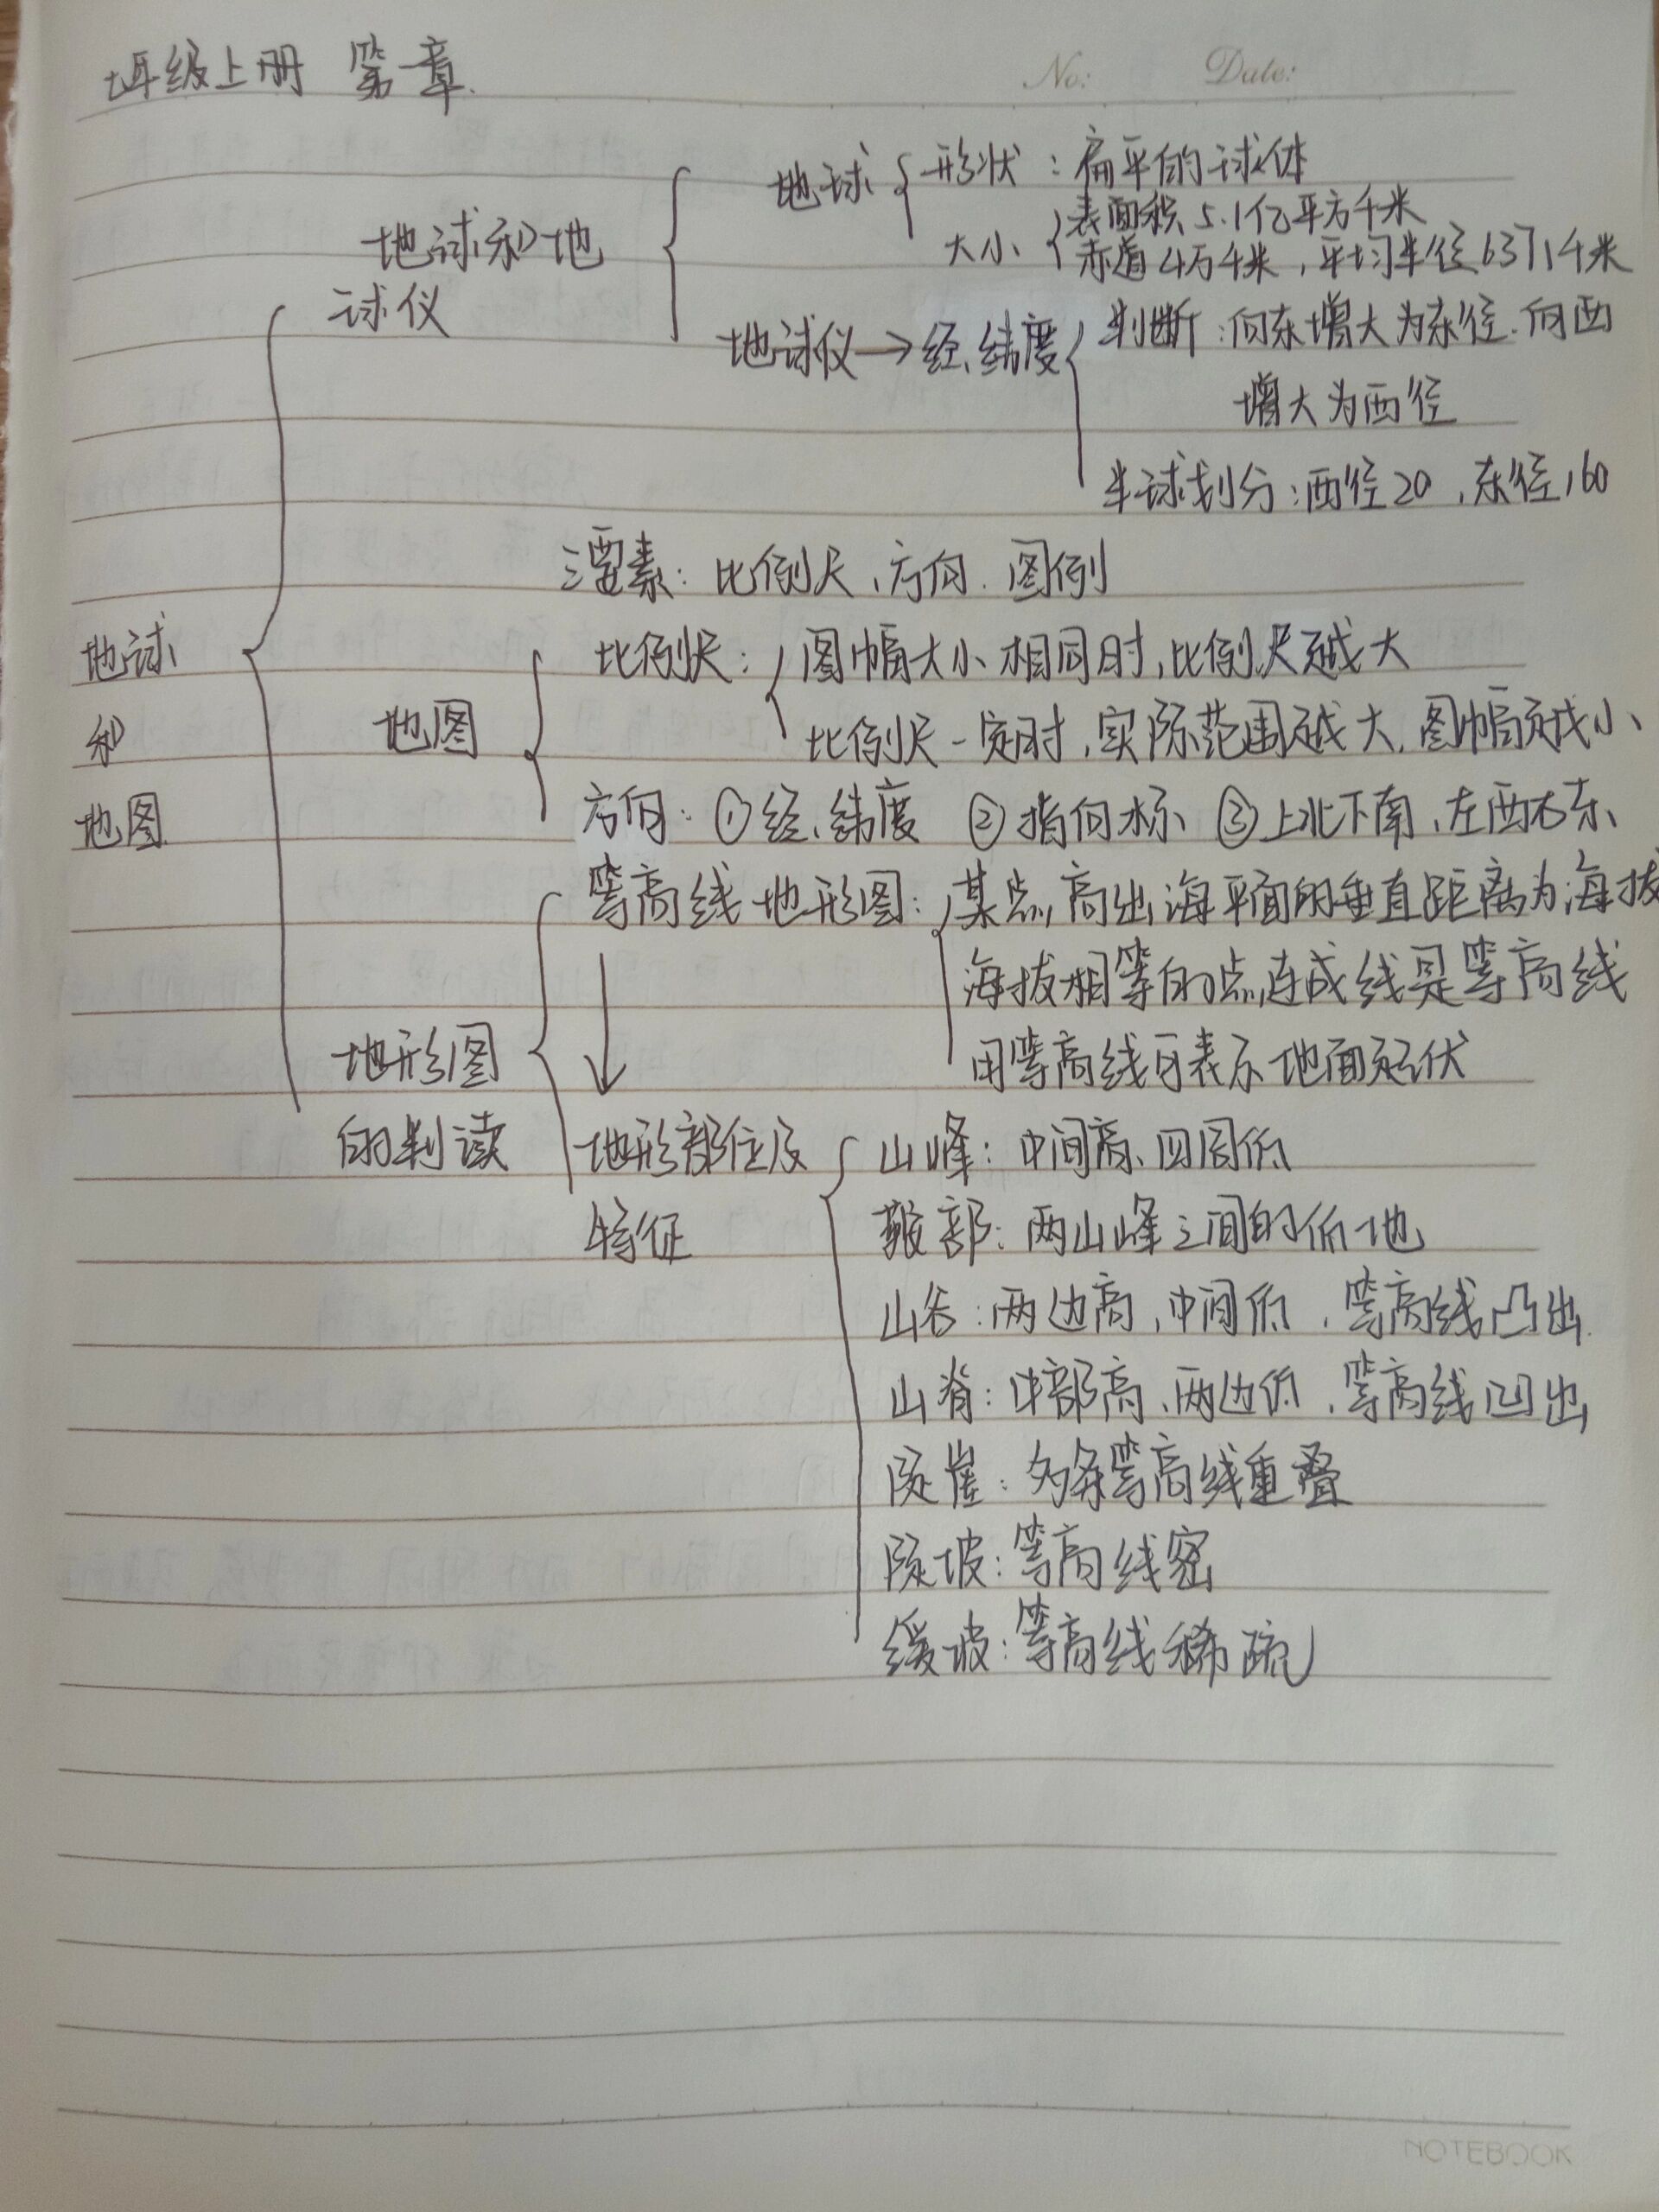 七年级上册 第一章.
No: Date:
地球 形状:扁平的球体
地球和地 大小 表面积5.1亿平方千米
赤道4万千米,平均半径6371千米
球仪 地球仪→经、纬度 判断:向东增大为东经.向西
增大为西经
半球划分:西经20、东经160
三要素:比例尺、方向.图例
地球 比例尺: 图幅大小相同时,比例尺越大
和 地图 比例尺一定时,实际范围越大,图幅越小、
地图 方向:①经、纬度 ②指向标、③上北下南、左西右东、
等高线地形图: 某点高出海平面的垂直距离为海拔
海拔相等的点连成线是等高线
地形图 用等高线可表示地面起伏
的判读 地形部位及 山峰:中间高、四周低
特征 鞍部:两山峰之间的低地
山谷:两边高、中间低、等高线凸出.
山脊:中部高、两边低、等高线凹出
陡崖:多条等高线重叠
陡坡:等高线密
缓坡:等高线稀疏
NOTEBOOK